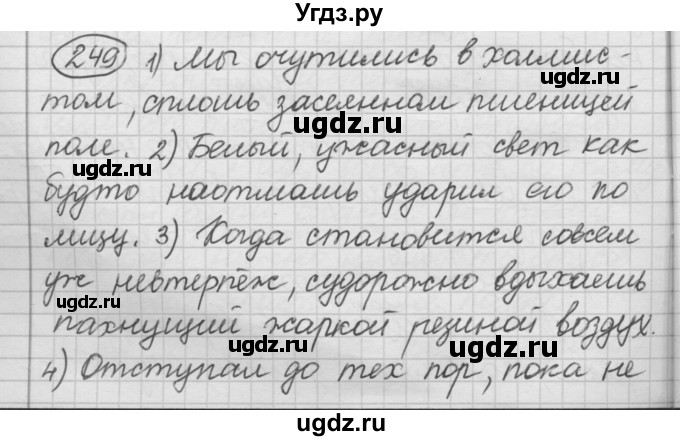 Угдз.ру
249 1) Мы очутились в холмис-
том, сплошь засеянном пшеницей
uGdz.ru uGdz.ru
поле. 2) Белый, ужасный свет как
uGdz.ru
будто наотмашь ударил его по
лицу. 3) Когда становится совсем
uGdz.ru uGdz.ru
уж невтерпёж, судорожно вдыхаешь
uGdz.ru
пахнущий жаркой резиной воздух.
uGdz.ru
4) Отступал до тех пор, пока не
uGdz.ru
uGdz.ru